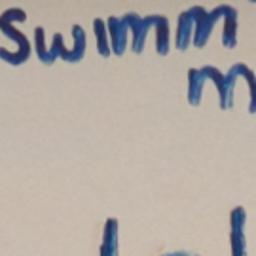 swimm
m